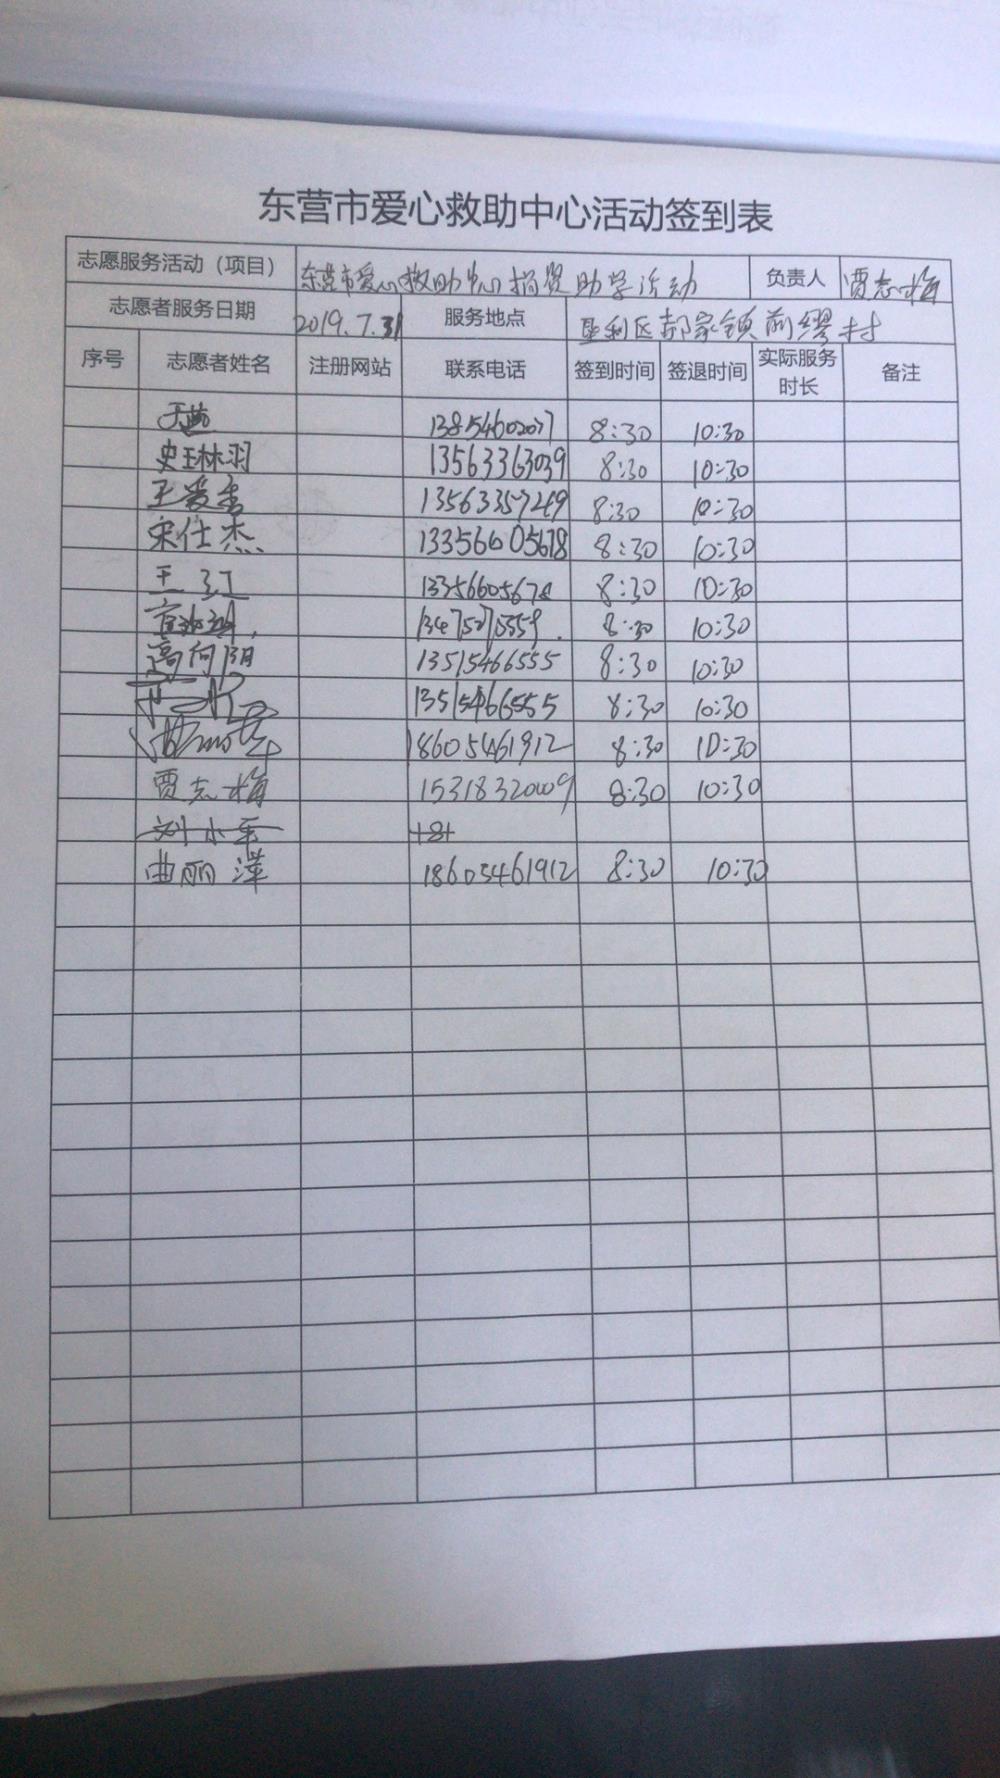 东营市爱心救助中心活动签到表
志愿服务活动（项目） 东营市爱心救助中心捐资助学活动 负责人 贾志梅
志愿者服务日期 2019.7.31 服务地点 垦利区郝家镇前缪村
序号 志愿者姓名 注册网站 联系电话 签到时间 签退时间 实际服务时长 备注
8:30 10:30
史玉林羽 13563363039 8:30 10:30
王爱香 13563357249 8:30 10:30
宋仕杰 13356605678 8:30 10:30
王红 13356605678 8:30 10:30
8:30 10:30
高向阳 13515466555 8:30 10:30
13515466555 8:30 10:30
18605461912 8:30 10:30
贾志梅 15318320009 8:30 10:30
刘小平 +8+
曲丽萍 18605461912 8:30 10:30